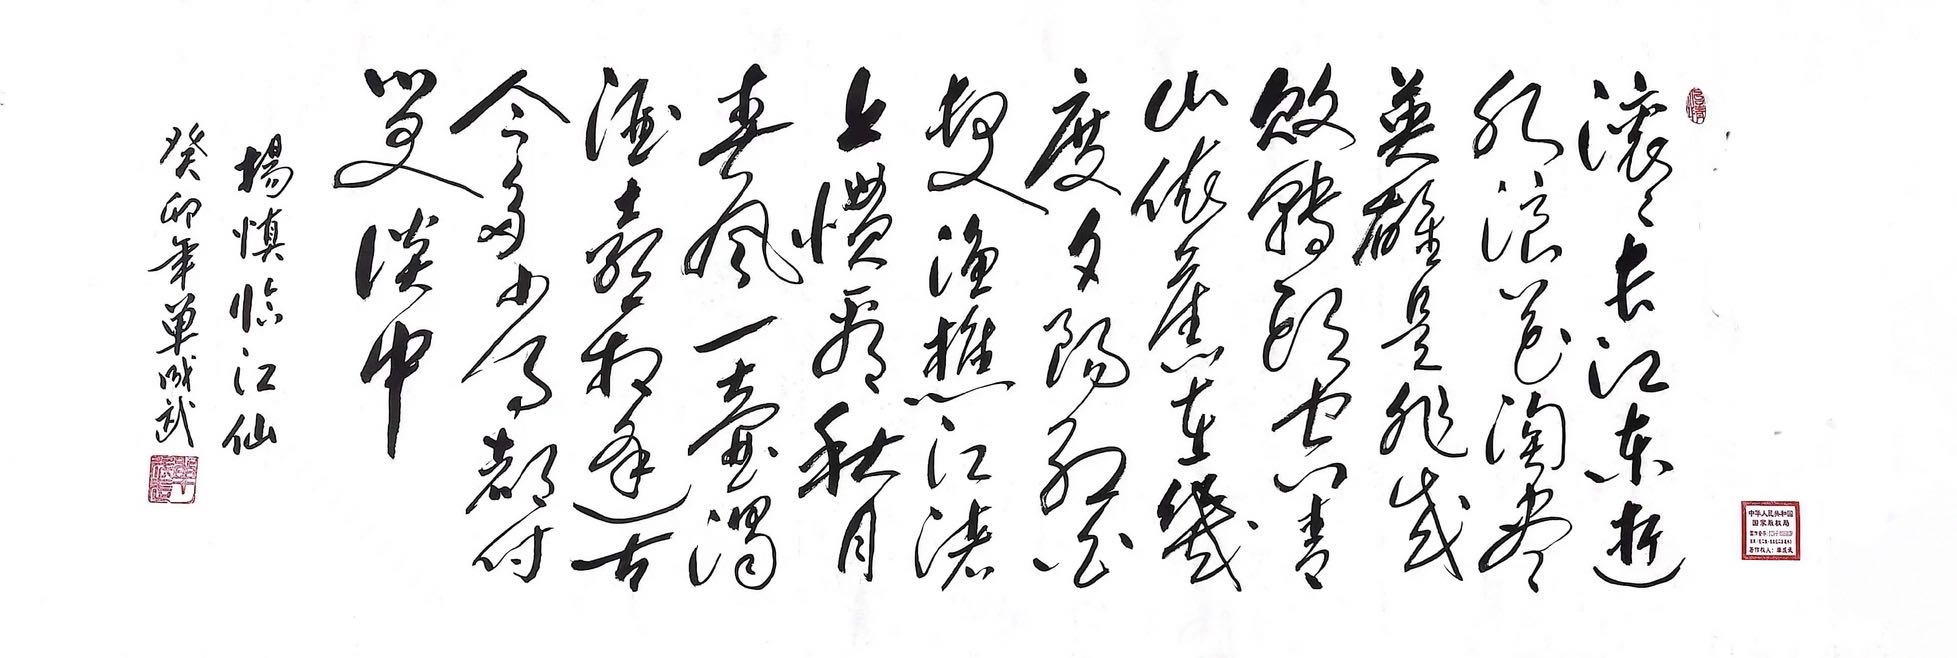 滚〻长江东逝
水浪花淘尽
英雄是非成
败转头空青
山依舊在幾
度夕陽红白
发渔樵江渚
上惯看秋月
春风一壶濁
酒喜相逢古
今多少事都付
笑谈中
楊慎临江仙
癸卯年单成武
中华人民共和国
国家版权局
著作权人：单成武